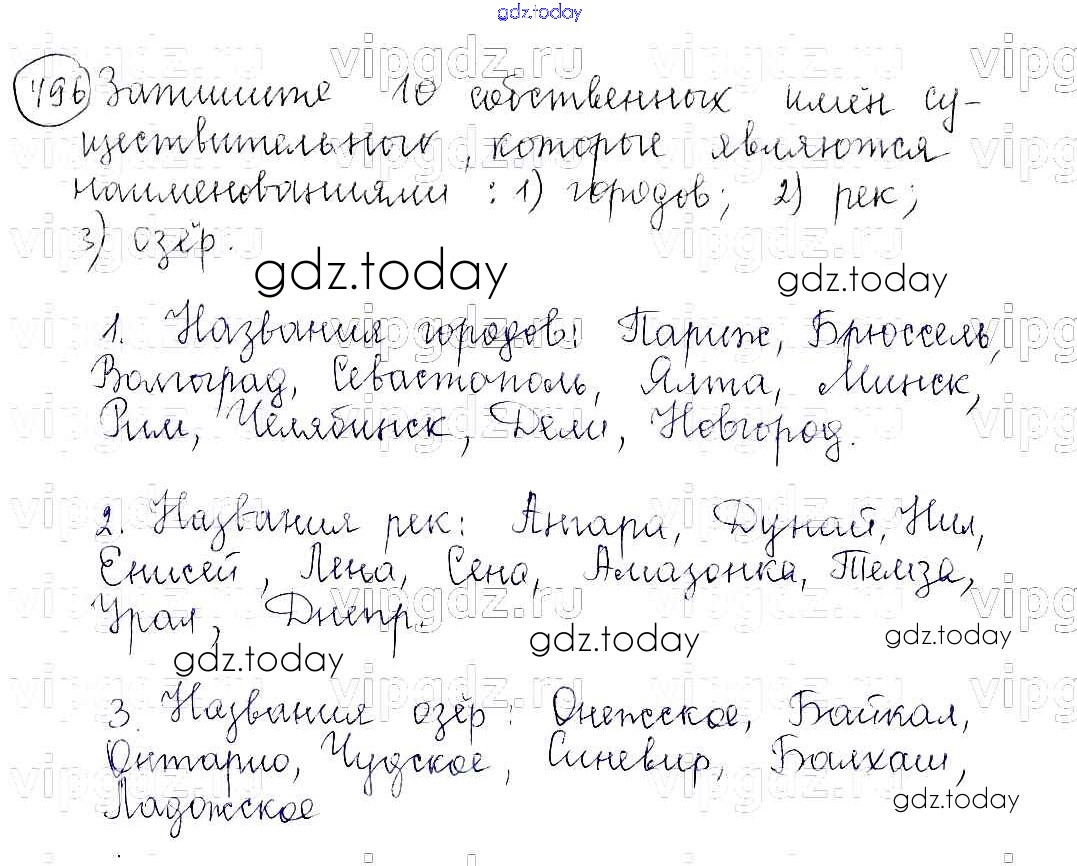 gdz.today
496 Запишите 10 собственных имён су-
ществительных, которые являются
наименованиями: 1) городов; 2) рек;
3) озёр.
gdz.today gdz.today
1. Названия городов: Париж, Брюссель,
Волгоград, Севастополь, Ялта, Минск,
Рим, Челябинск, Дели, Новгород.
2. Названия рек: Ангара, Дунай, Нил,
Енисей, Лена, Сена, Амазонка, Темза,
Урал, Днепр.
gdz.today gdz.today gdz.today
3. Названия озёр: Онежское, Байкал,
Онтарио, Чудское, Синевир, Балхаш,
Ладожское
gdz.today
vipgdz.ru vipgdz.ru vipgdz.ru